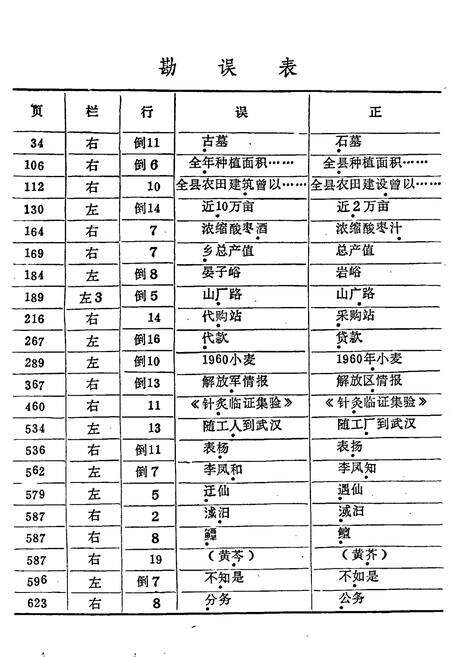 勘误表
页 栏 行 误 正
34 右 倒11 古墓 石墓
106 右 倒6 全年种植面积…… 全县种植面积……
112 右 10 全县农田建筑曾以…… 全县农田建设曾以……
130 左 倒14 近10万亩 近2万亩
164 右 7 浓缩酸枣酒 浓缩酸枣汁
169 右 7 乡总产值 总产值
184 左 倒8 晏子峪 岩峪
189 左3 倒5 山厂路 山广路
216 右 14 代购站 采购站
267 左 倒16 代款 贷款
289 左 倒10 1960小麦 1960年小麦
367 右 倒13 解放军情报 解放区情报
460 右 11 《针灸临证集验》 《针灸临证集验》
534 左 13 随工人到武汉 随工厂到武汉
536 右 倒11 表杨 表扬
562 左 倒7 李凤和 李凤知
579 左 5 迂仙 遇仙
587 右 2
587 右 8
587 右 19 (黄芩) (黄芥)
596 左 倒7 不知是 不如是
623 右 8 分务 公务